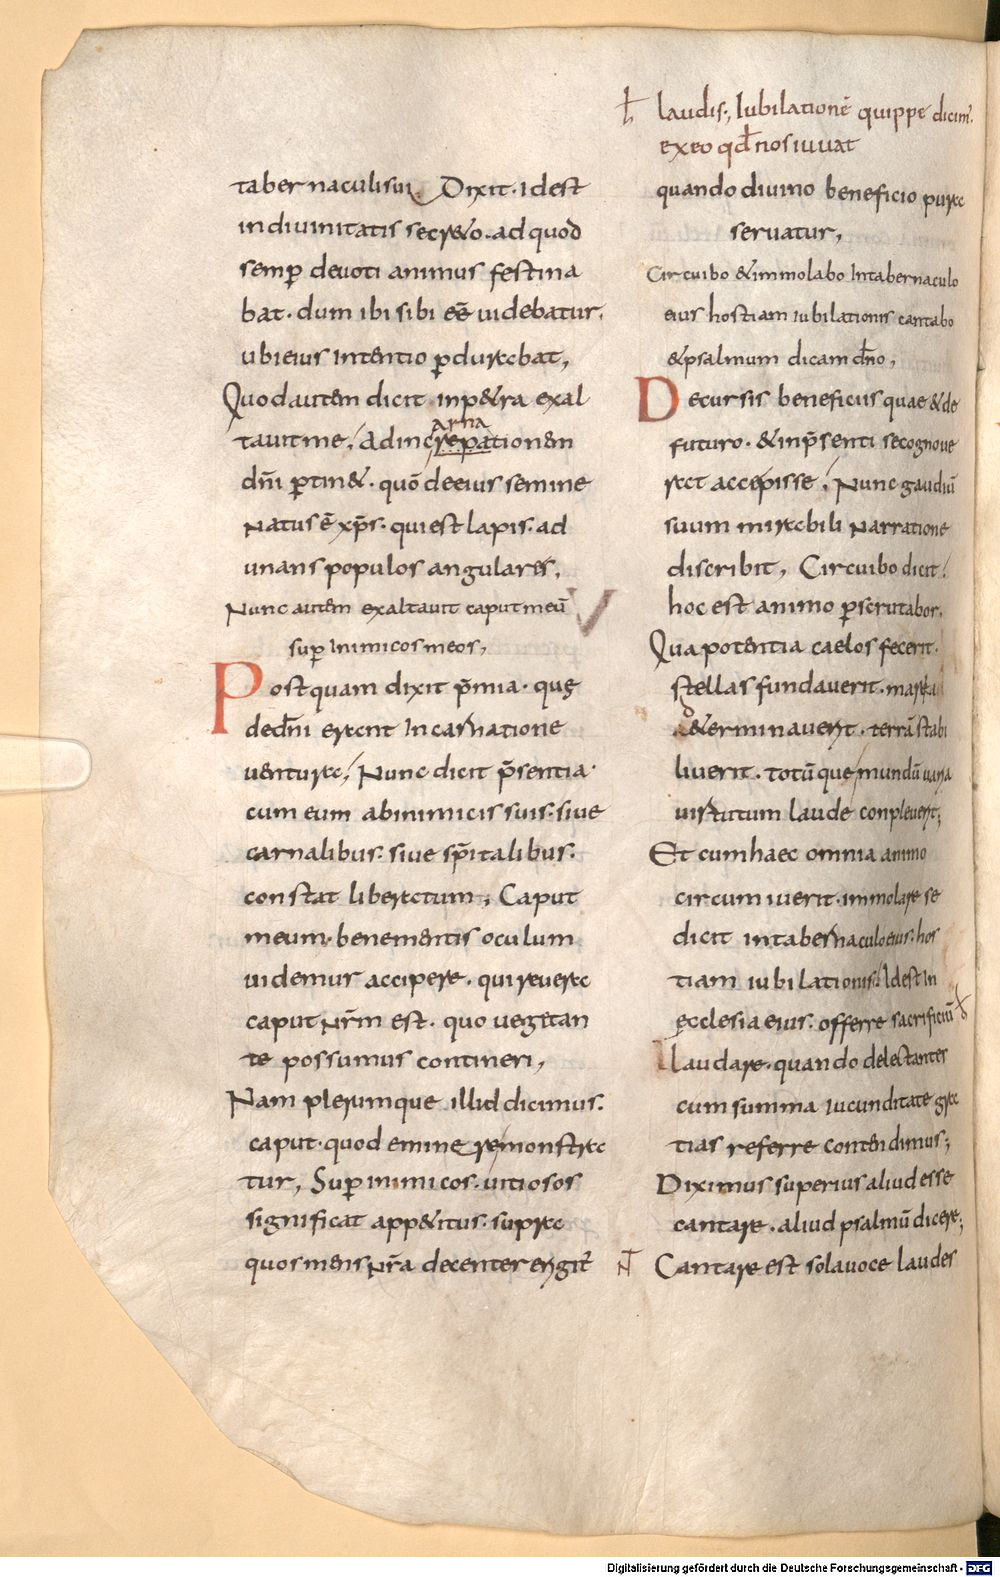 tabernaculi sui. Dixit. id est
in divinitatis secr&o. ad quod
semp̄ devoti animus festina
bat. dum ibi sibi eē videbatur.
ubi eius intentio p̄durabat,
Quod autem dicit in p&ra exal
arna
tavit me, ad increpationem
dn̄i p̄tin&. quō de eius semine
natus ē xp̄s. qui est lapis. ad
unans populos angulares,
Nunc autem exaltavit caput meū
sup̄ inimicos meos,
Postquam dixit p̄mia. quę
de dn̄i erant incarnatione
ventura, Nunc dicit p̄sentia.
cum eum ab inimicis suis. sive
carnalibus. sive sp̄italibus.
constat liberatum; Caput
meum. bene mentis oculum
videmus accipere. qui revera
caput nr̄m est. quo vegetan
te possumus contineri,
Nam plerumque illud dicimus.
caput. quod eminere monstra
tur, Sup̄ inimicos. vitiosos
significat app&itus. supra
quos mens nr̄a decenter erigit᷑
ħ laudis; Iubilationē quippe dicim᷒.
ex eo qđ nos iuvat
quando divino beneficio pura
servatur,
Circuibo & immolabo in tabernaculo
eius hostiam iubilationis cantabo
& psalmum dicam dn̄o,
Decursis beneficiis quae & de
futuro. & in p̄senti se cognove
rat accepisse, Nunc gaudiū
suum mirabili narratione
discribit, Circuibo dicit,
hoc est animo p̄scrutabor.
Qua potentia caelos fecerit.
stellas fundaverit. maria
d&erminaverit. terrā stabi
liverit. totūque mundū varia
virtutum laude conpleverit;
Et cum haec omnia animo
circumiverit. immolare se
dicit in tabernaculo eius. hos
tiam iubilationis. Id est in
ecclesia eius. offerre sacrificiū
Laudare. quando delectantes
cum summa iucunditate gra
tias referre contendimus;
Diximus superius aliud esse
cantare. aliud psalmū dicere;
Cantare est sola voce laudes
Digitalisierung gefördert durch die Deutsche Forschungsgemeinschaft - DFG